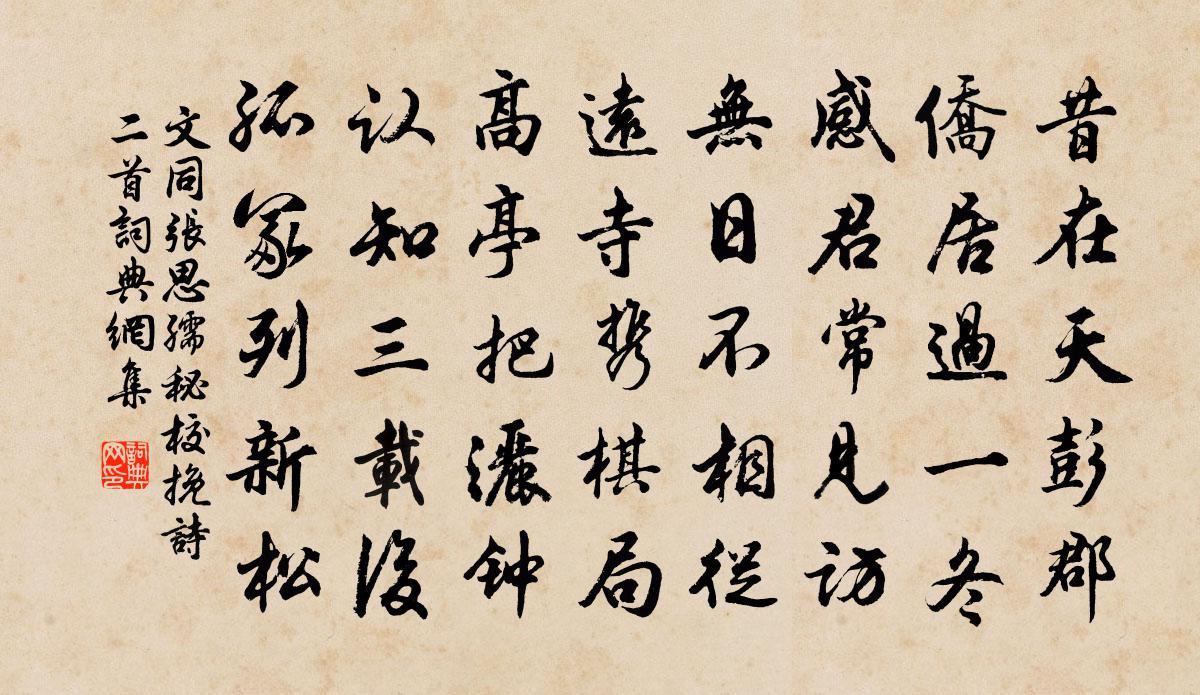 昔在天彭郡
僑居過一冬
感君常見訪
無日不相從
遠寺携棋局
高亭把灑钟
认知三載後
孤冢列新松
文同張思孺秘校挽詩
二首詞典網集
詞典
网印